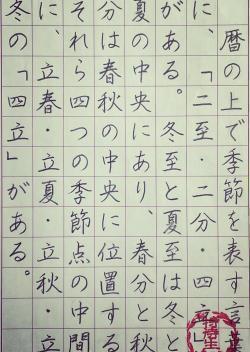 暦の上で季節を表す言葉
に、「二至・二分・四立」
がある。冬至と夏至は冬と
夏の中央にあり、春分と秋
分は春秋の中央に位置する
それら四つの季節点の中間
に、立春・立夏・立秋・立
冬の「四立」がある。